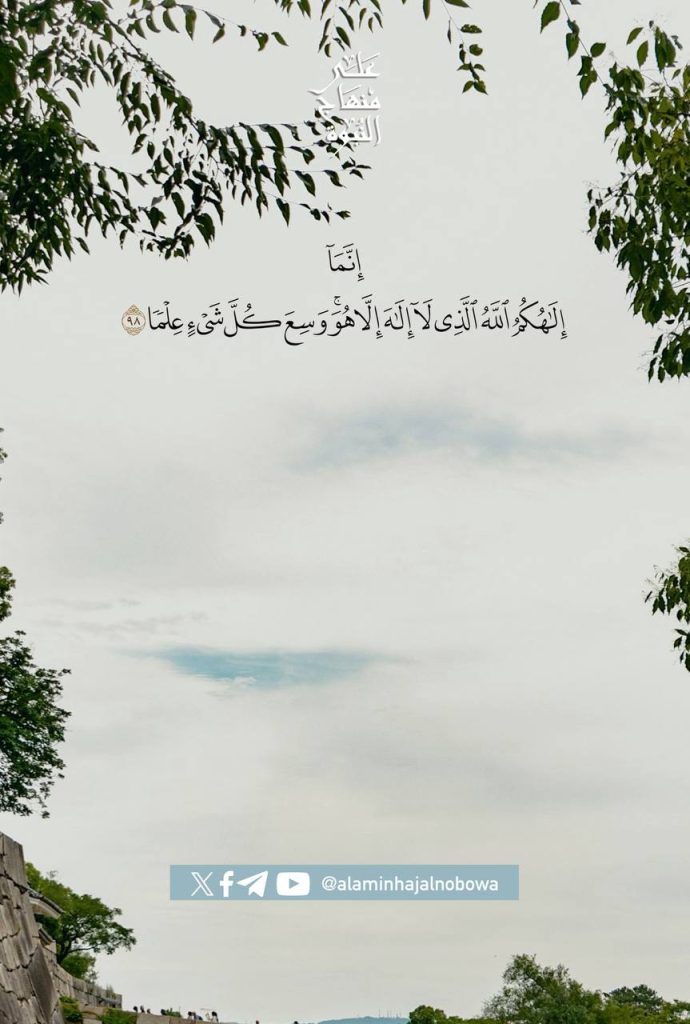 على
منهاج
النبوة
إِنَّمَآ
إِلَـٰهُكُمُ ٱللَّهُ ٱلَّذِى لَآ إِلَـٰهَ إِلَّا هُوَ ۚ وَسِعَ كُلَّ شَىْءٍ عِلْمًا ٩٨
@alaminhajalnobowa